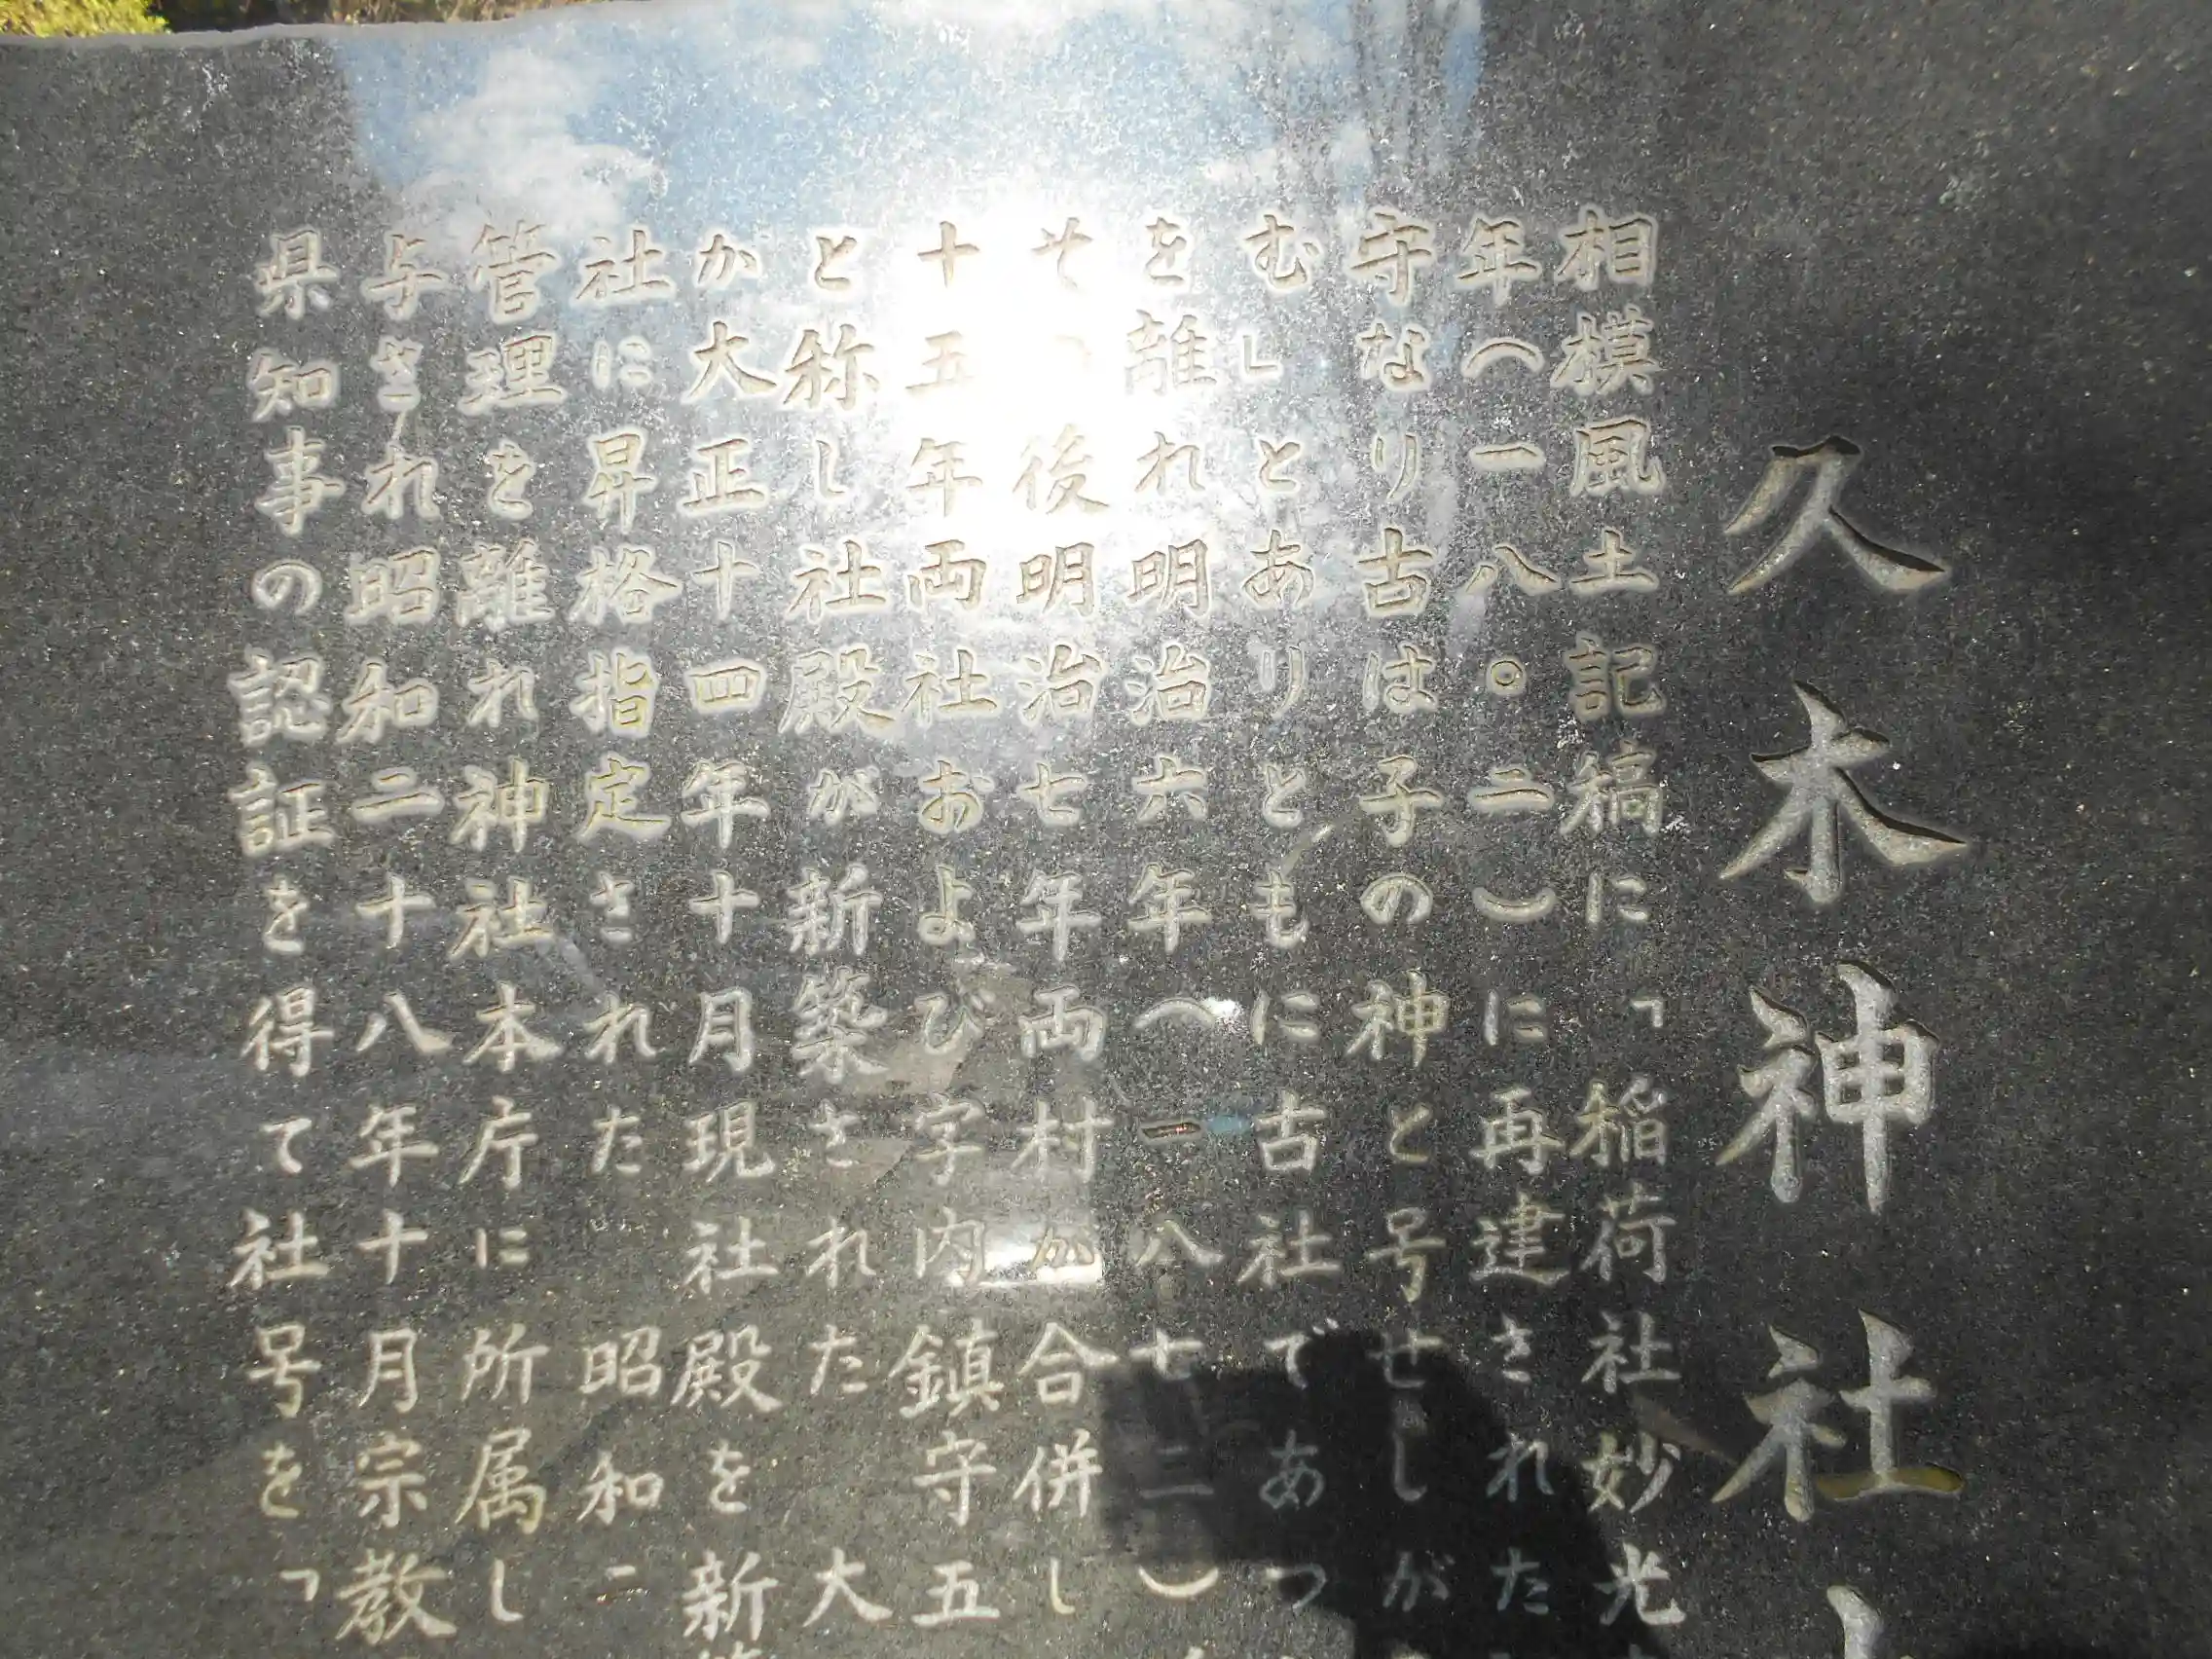 久木神社
相模風土記稿に「稲荷社妙光
年(一八〇二)に再建された
守なり古は子の神と号せしが
む」とありともに古社であつ
を離れ明治六年(一八七二)
その後明治七年両村が合併し
十五年両社および字内鎮守五
と称し社殿が新築された大
か大正十四年十月現社殿を新築
社に昇格指定された 昭和二
管理を離れ神社本庁に所属し
与され昭和二十八年十月宗教
県知事の認証を得て社号を「